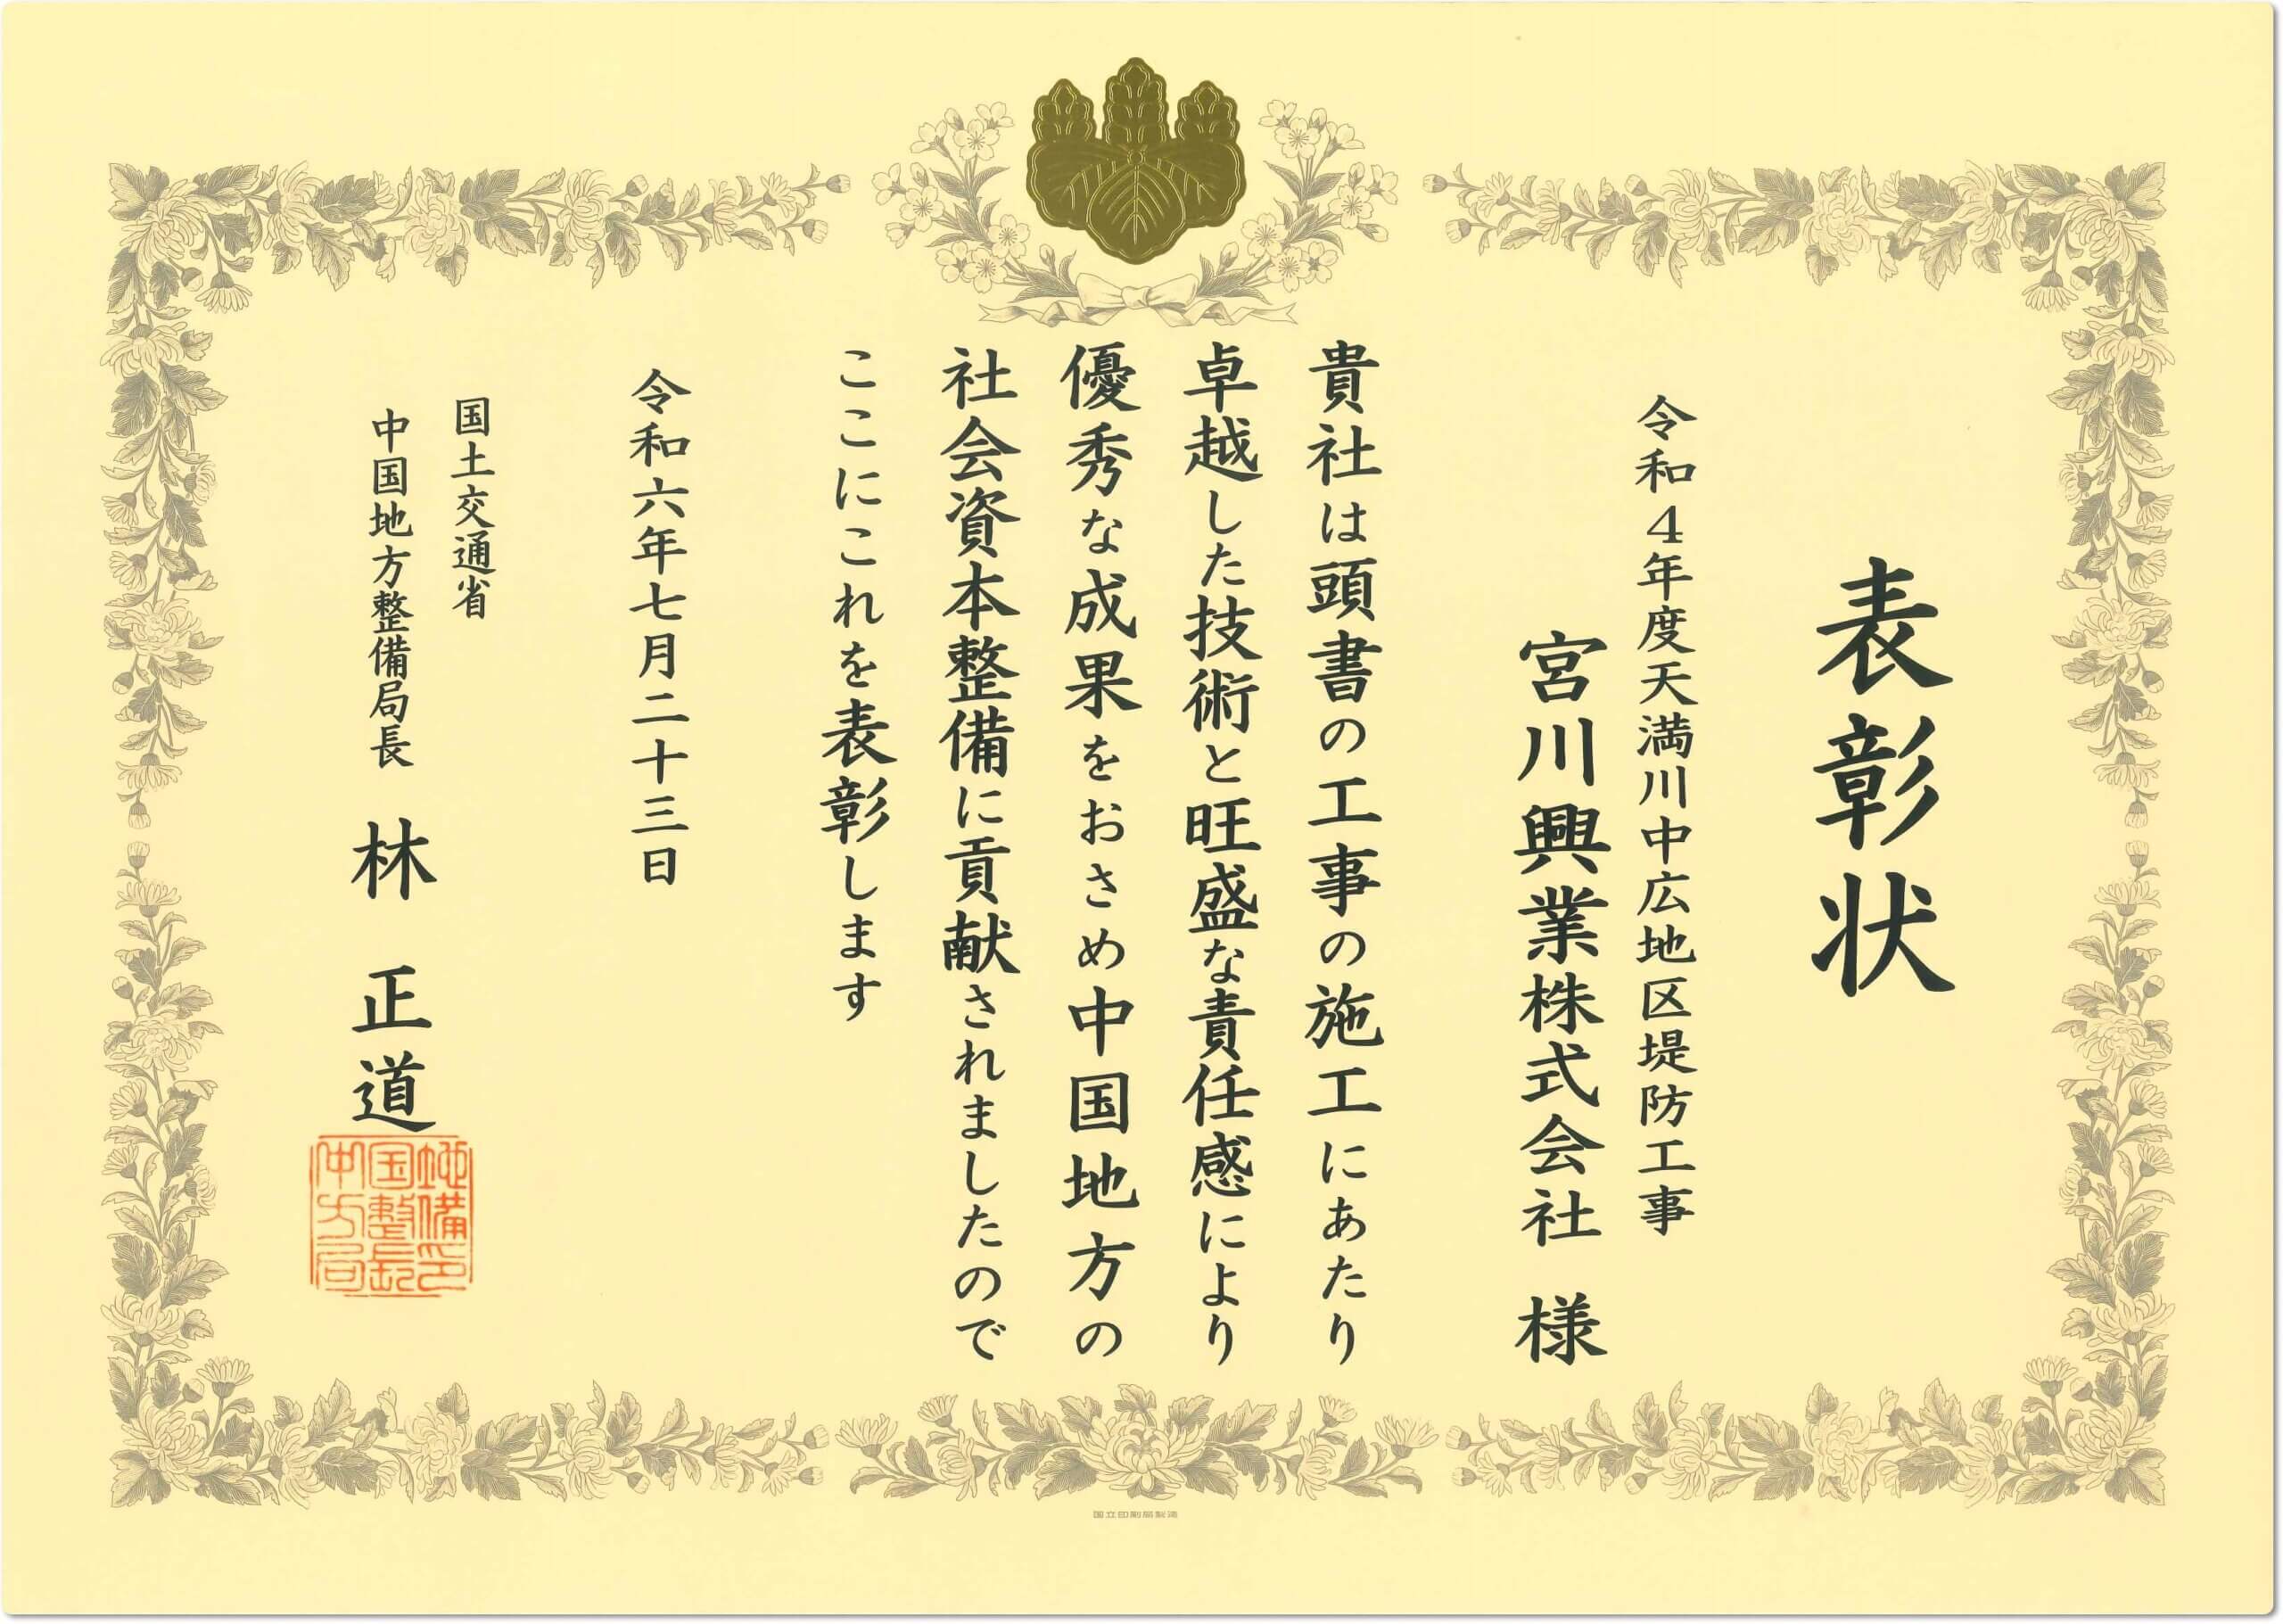 表彰状
令和4年度天満川中広地区堤防工事
宮川興業株式会社 様
貴社は頭書の工事の施工にあたり
卓越した技術と旺盛な責任感により
優秀な成果をおさめ中国地方の
社会資本整備に貢献されましたので
ここにこれを表彰します
令和六年七月二十三日
国土交通省
中国地方整備局長 林 正道
地備印
国整長
中方局
国立印刷局製造